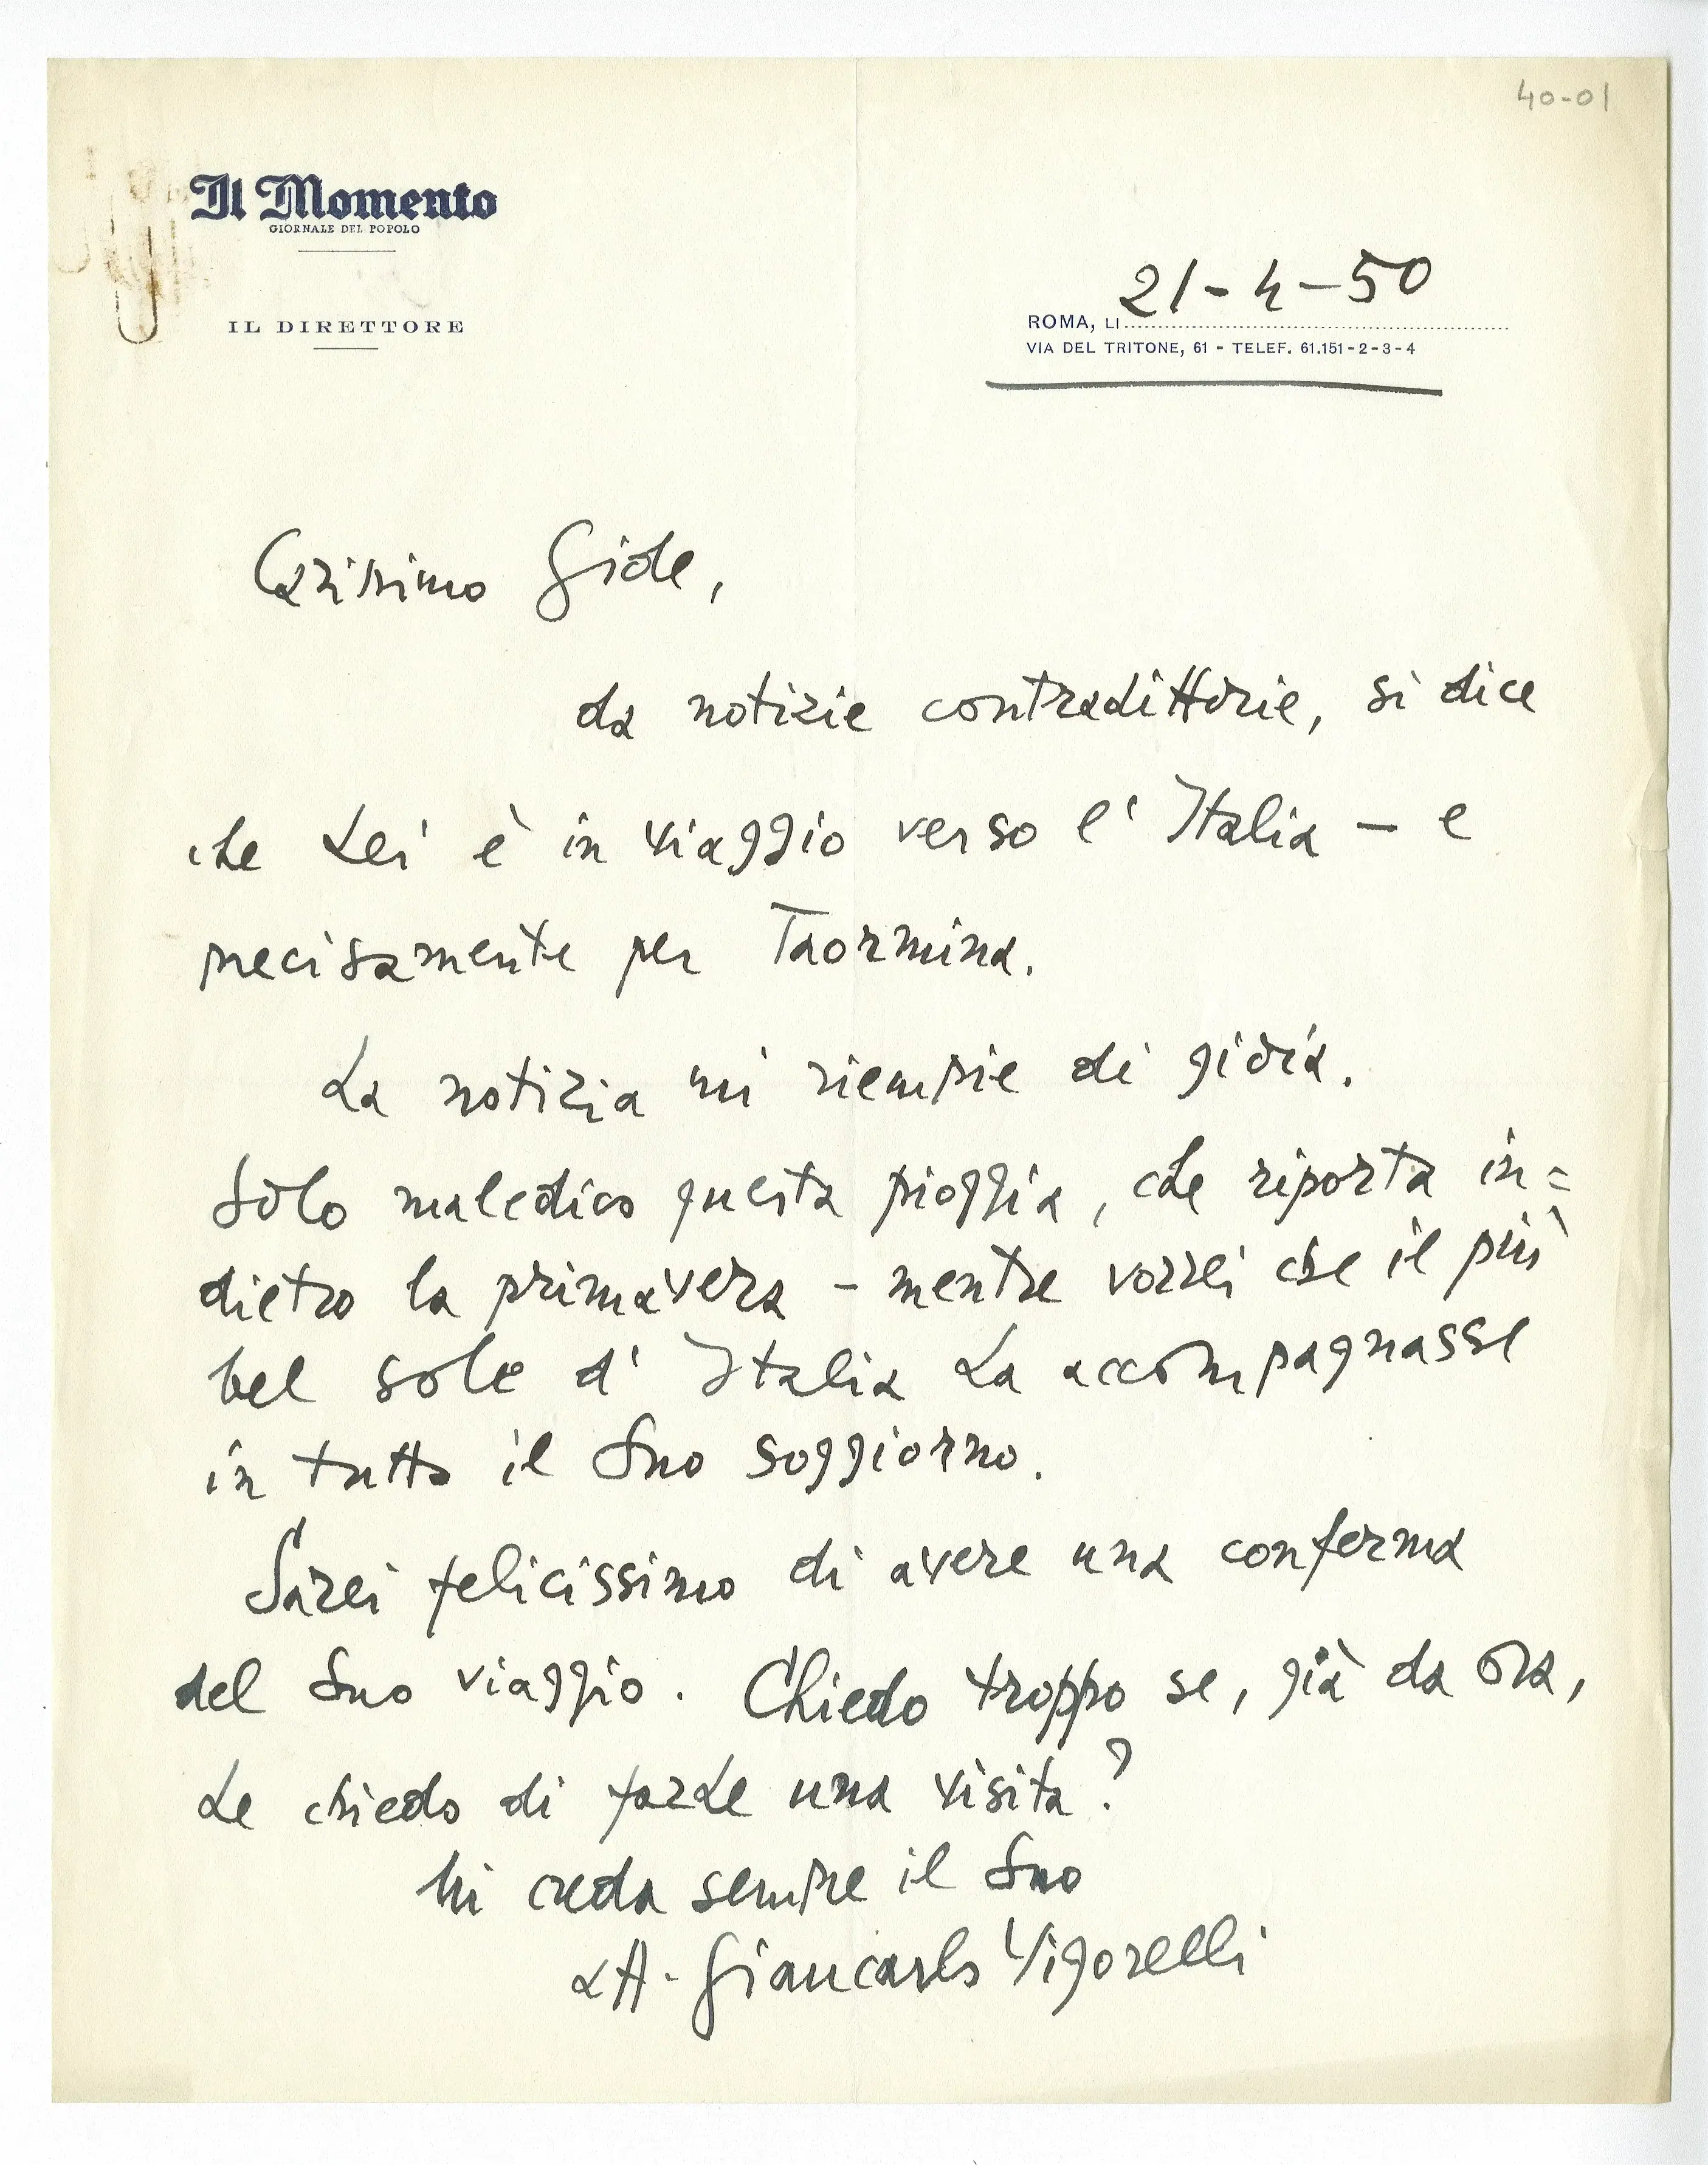 40-01
Il Momento
GIORNALE DEL POPOLO
IL DIRETTORE
21-4-50
ROMA, LI
VIA DEL TRITONE, 61 - TELEF. 61.151-2-3-4
Carissimo Gide,
da notizie contradittorie, si dice
che Lei è in viaggio verso l'Italia — e
precisamente per Taormina.
La notizia mi riempie di gioia.
Solo maledico questa pioggia, che riporta in=
dietro la primavera — mentre vorrei che il più
bel sole d'Italia La accompagnasse
in tutto il Suo soggiorno.
Sarei felicissimo di avere una conferma
del Suo viaggio. Chiedo troppo se, già da ora,
Le chiedo di farLe una visita?
Mi creda sempre il Suo
Giancarlo Vigorelli